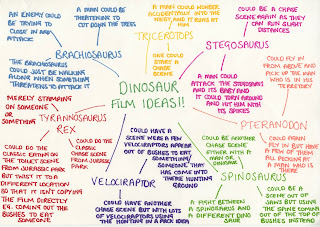 AN ENEMY COULD BE
TRYING TO
CLOSE IN AND
ATTACK
A MAN COULD BE
THREATENING TO
CUT DOWN THE TREES
A MAN COULD WONDER
ACCIDENTALLY INTO THE
NEST, AND IT RUNS AT
HIM
COULD BE A CHASE
SCENE AGAIN AS THEY
CAN RUN SLIGHT
DISTANCES
BRACHIOSAURUS
TRICERATOPS
STEGOSAURUS
THE BRACHIOSAURUS
COULD JUST BE WALKING
ALONE WHEN SOMETHING
THREATENS TO ATTACK IT
ONE COULD
START A
CHASE
SCENE
A MAN COULD
ATTACK THE STEGOSAURUS
AND ITS BABY AND
IT COULD TURN AROUND
AND HIT HIM WITH
ITS SPIKES
COULD FLY IN
FROM ABOVE AND
PICK UP THE MAN
WHO IS IN HIS
TERRITORY
DINOSAUR
FILM IDEAS!!
MERELY STAMPING
ON SOMEONE
OR
SOMETHING
TYRANNOSAURUS
REX
PTERANODON
COULD DO THE
CLASSIC IMITATION OF
THE TOILET SCENE
FROM JURASSIC PARK
BUT TWIST IT TO A
DIFFERENT LOCATION
SO THAT IT ISN'T COPYING
THE FILM DIRECTLY
EG. COMING OUT THE
BUSHES TO EAT
SOMEONE
COULD DO THE
CLASSIC
CHASE SCENE
FROM JURASSIC
PARK
COULD HAVE A
SCENE WERE A FEW
VELOCIRAPTORS APPEAR
OUT OF BUSHES TO
EAT SOMETHING/
SOMEONE THAT
HAS COME INTO
THERE HUNTING
GROUND
COULD BE ANOTHER
CHASE SCENE
EITHER WITH A
MAN OR
DINOSAUR
COULD AGAIN
FLY IN BUT HAVE
A FEW OF THEM
ALL PECKING AT
A MAN WHO IS
THERE
VELOCIRAPTOR
SPINOSAURUS
COULD HAVE ANOTHER
CHASE SCENE BUT WITH LOTS
OF VELOCIRAPTORS USING
THE HUNTING IN A PACK IDEA
A FIGHT BETWEEN
A SPINOSAURUS AND
A DIFFERENT DINO
SAUR
COULD BE A
SCENE OUT
OF JAWS BUT USING
THE SPINE COMING
OUT OF THE TOP OF
BUSHES INSTEAD